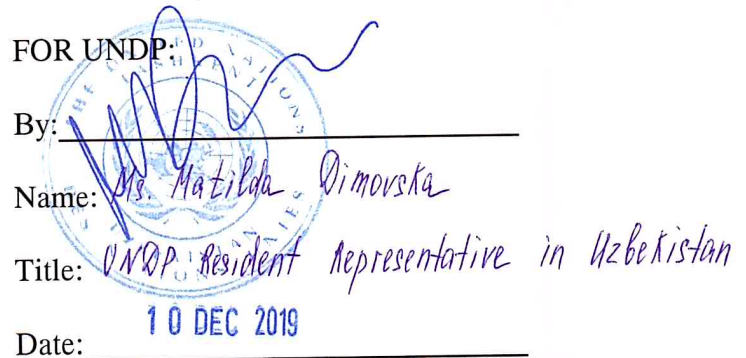 FOR UNDP:
By:
Name: Ms. Matilda Dimovska
Title: UNDP Resident Representative in Uzbekistan
10 DEC 2019
Date: